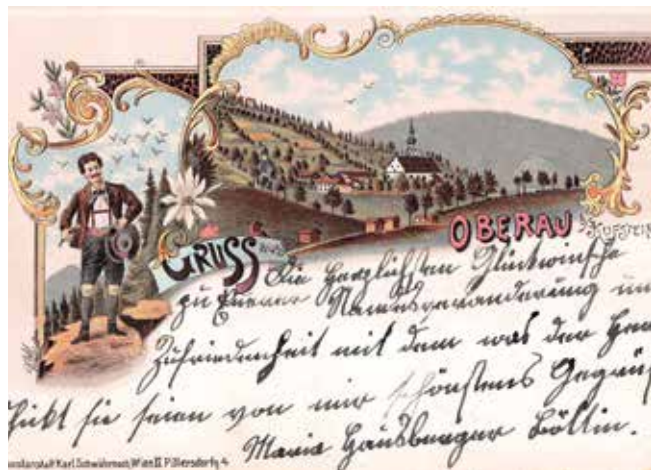 GRUSS aus
OBERAU
KUFSTEIN
Die herzlichsten Glückwinsche
zu Eurer Namensveranderung un
Zufriedenheit mit dem was der Her
schikt sie seien von mir schönstens Gegrüs
Maria Hausberger
Karl Schwidernoch, Wien II. Pillersdorfg. 4